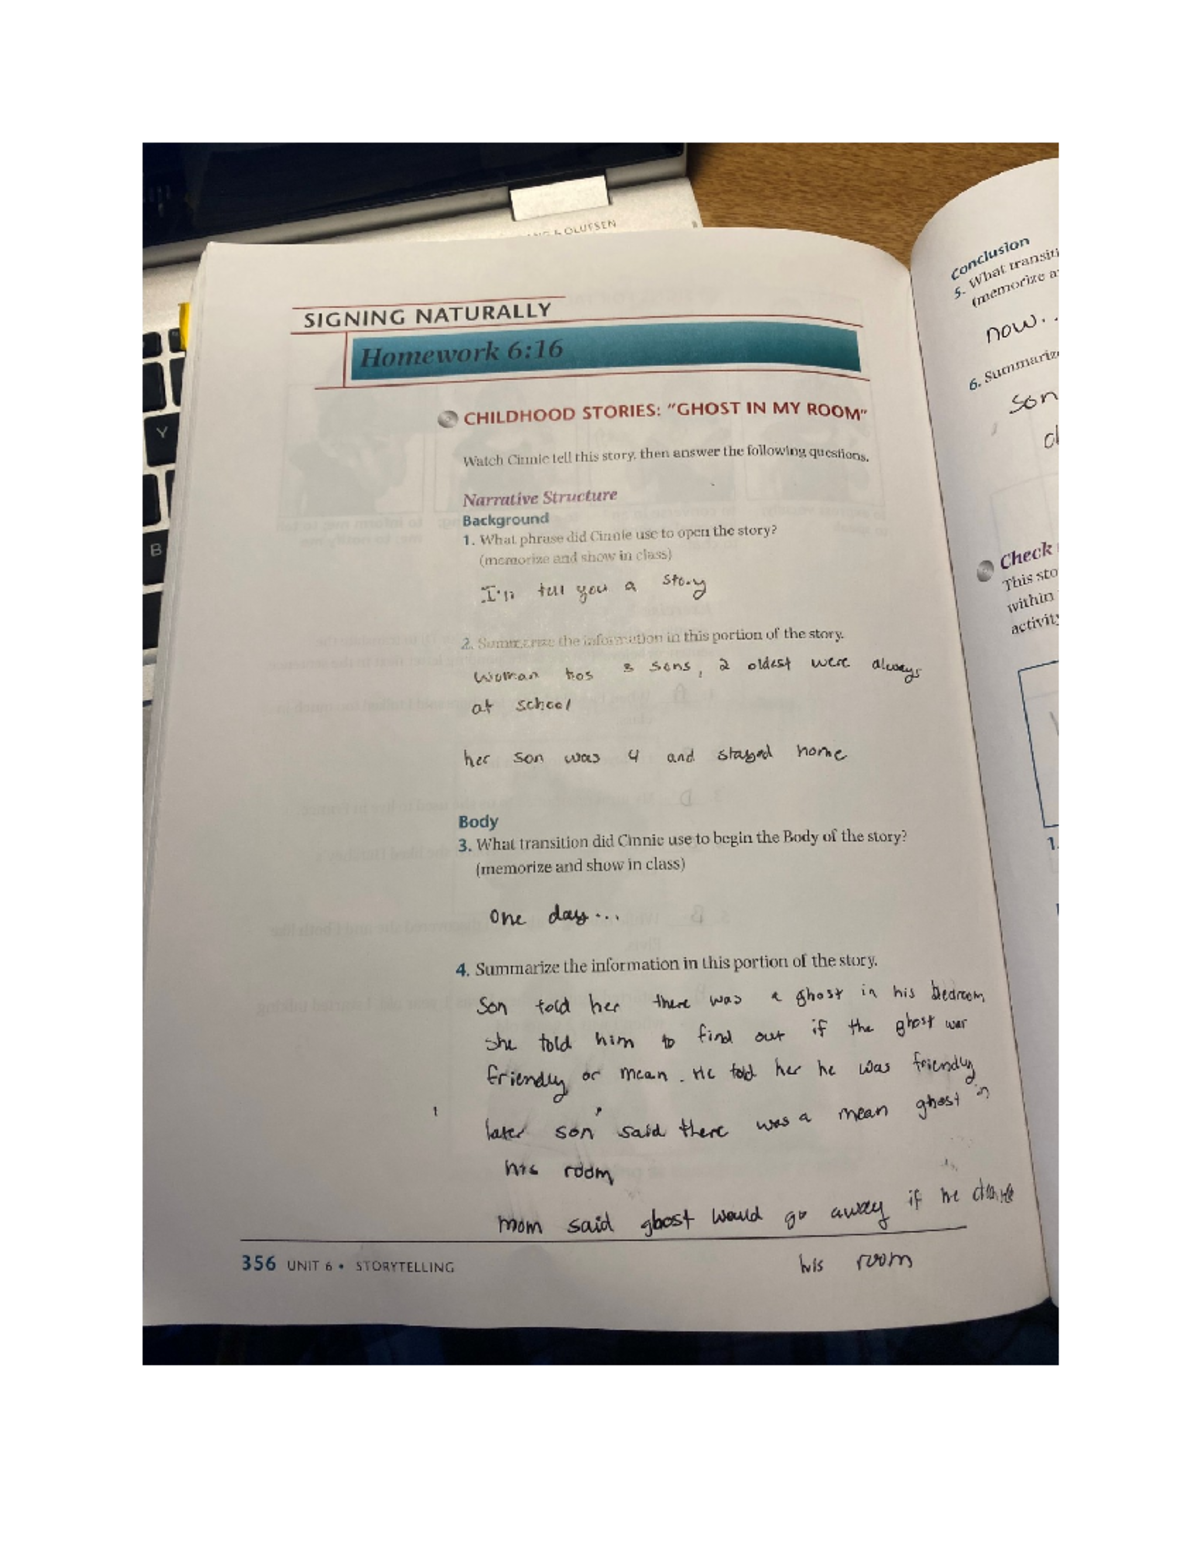 & OLUFSEN
Y
B
SIGNING NATURALLY
Homework 6:16
CHILDHOOD STORIES: "GHOST IN MY ROOM"
Watch Cinnie tell this story, then answer the following questions.
Narrative Structure
Background
1. What phrase did Cinnie use to open the story?
(memorize and show in class)
I'll tell you a story
2. Summarize the information in this portion of the story.
Woman has 3 sons, 2 oldest were always
at school
her son was 4 and stayed home
Body
3. What transition did Cinnie use to begin the Body of the story?
(memorize and show in class)
One day...
4. Summarize the information in this portion of the story.
Son told her there was a ghost in his bedroom
she told him to find out if the ghost was
friendly or mean. He told her he was friendly
later son said there was a mean ghost in
his room
mom said ghost would go away if he
his room
356 UNIT 6 • STORYTELLING
Conclusion
5. What
(memorize
now..
6.
Son
Check
This
within
1.